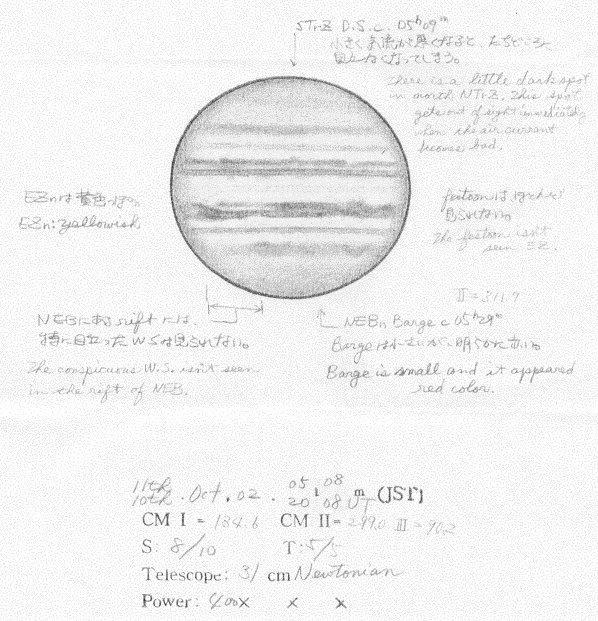 STrZ D.S. c. 05h09m
小さく気流が悪くなると、たちどころに
見えなくなってしまう。
There is a little dark spot
in north NTrZ. This spot
gets out of sight immediately
when the air current
becomes bad.
EZnは黄色っぽい。
EZn: yellowish
festoonはほとんど
見られない。
The festoon isn't
seen EZ.
II=311.9
NEBにあるriftには、
特に目立ったWSは見られない。
The conspicuous W.S. isn't seen
in the rift of NEB.
NEBn Barge c 05h29m
Bargeは小さいが、明らかに赤い。
Barge is small and it appeared
red color.
11th 05 08
10th. Oct. 02. 20h 08m UT (JST)
CM I = 134.6 CM II = 299.0 III = 90.2
S: 8/10 T: 5/5
Telescope: 31 cm Newtonian
Power: 400× × ×